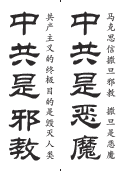 马克思信撒旦邪教 撒旦是恶魔
中共是恶魔
共产主义的终极目的是毁灭人类
中共是邪教